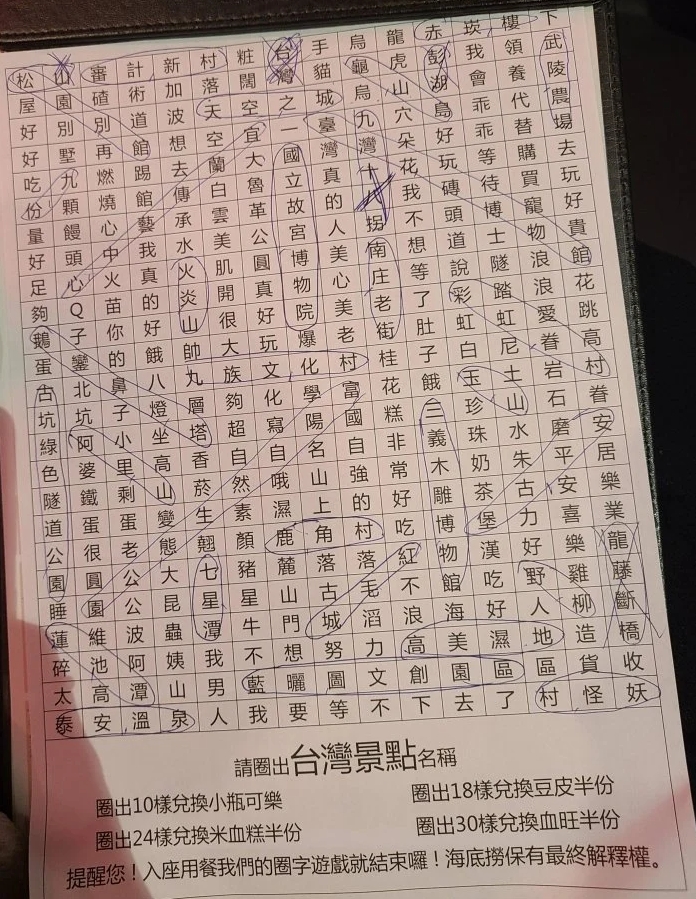 松山審計新村粧台手烏龍赤崁樓下
屋園碴術加落闊灣貓龜虎彭我領武
好別別道波天空之城烏山湖會養陵
好墅再館想空宜一臺九穴島乖代農
吃九燃踢去蘭大國灣灣朵好乖替場
份顆燒館傳白魯立真十花玩等購去
量饅心藝承雲革故的八我磚待買玩
好頭中我水美公宮人拐不頭博寵好
足心火真火肌圓博美南想道士物貴
夠Q苗的炎開真物心庄等說隧浪館
鵝子你好山很好院美老了彩踏浪花
蛋鑾的餓帥大玩爆老街肚虹虹愛跳
古北鼻八丸族文化村桂子白尼眷高
坑坑子燈層夠化學富花餓玉土岩村
綠阿小坐塔超寫陽國糕三珍山石眷
色婆里高香自自名自非義珠水磨安
隧鐵剩山菸然哦山強常木奶朱平居
道蛋蛋變生素濕上的好雕茶古安樂
公很老態翹顏鹿角村吃博堡力喜業
園圓公大七豬麓落落紅物漢好樂龍
睡園公昆星星山古毛不館吃野雞藤
蓮維波蟲潭牛門城滔浪海好人柳斷
碎池阿姨我不想努力高美濕地造橋
太高潭山男藍曬圖文創園區區貨收
泰安溫泉人我要等不下去了村怪妖
請圈出台灣景點名稱
圈出10樣兌換小瓶可樂 圈出18樣兌換豆皮半份
圈出24樣兌換米血糕半份 圈出30樣兌換血旺半份
提醒您！入座用餐我們的圈字遊戲就結束囉！海底撈保有最終解釋權。